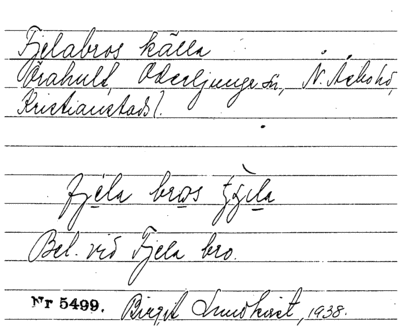 Fjelabros källa
Örahult, Oderljunga sn, N. Åsbo hd,
Kristianstads l.
fjela bros
Bel. vid Fjela bro.
Nr 5499. Birgit Lundkvist, 1938.